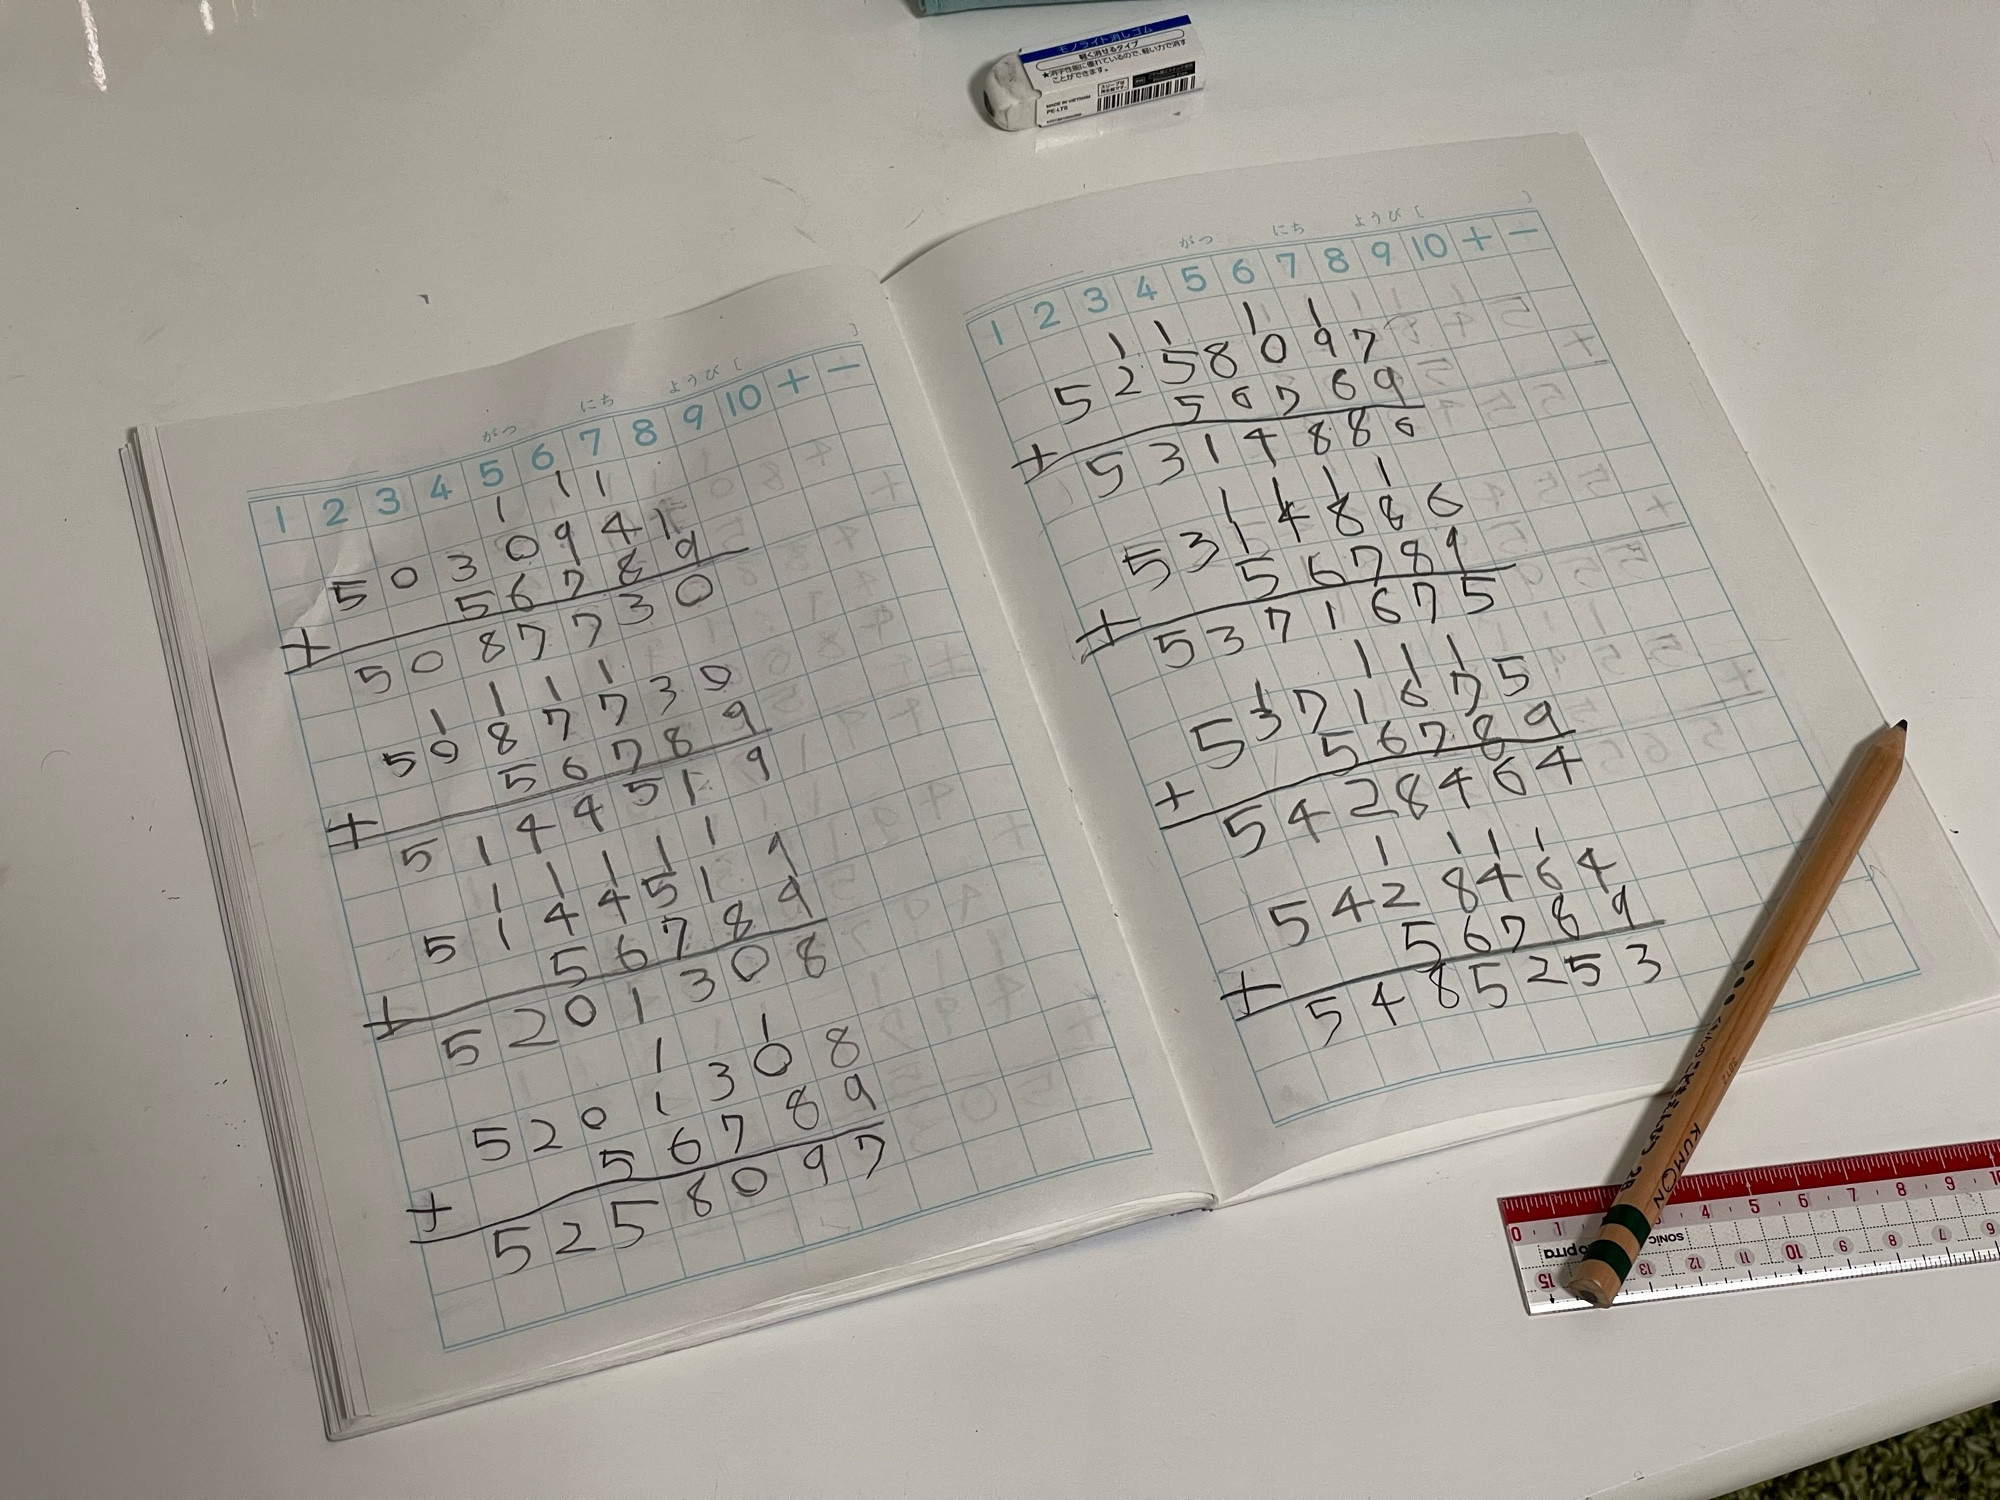 モノライト消しゴム
軽く消せるタイプ
★消字性能に優れているので、軽い力で消す
ことができます。
MADE IN VIETNAM
PE-LT8
がつ にち ようび [ ]
1 2 3 4 5 6 7 8 9 10 + −
1 1 1
5 0 3 0 9 4 1
5 6 7 8 9
+
5 0 8 7 7 3 0
1 1 1 1
5 0 8 7 7 3 0
5 6 7 8 9
+
5 1 4 4 5 1 9
1 1 1 1 1
5 1 4 4 5 1 9
5 6 7 8 9
+
5 2 0 1 3 0 8
1 1
5 2 0 1 3 0 8
5 6 7 8 9
+
5 2 5 8 0 9 7
がつ にち ようび [ ]
1 2 3 4 5 6 7 8 9 10 + −
1 1 1 1
5 2 5 8 0 9 7
5 6 7 6 9
+
5 3 1 4 8 8 6
1 1 1 1
5 3 1 4 8 8 6
5 6 7 8 9
+
5 3 7 1 6 7 5
1 1 1 1
5 3 7 1 6 7 5
5 6 7 8 9
+
5 4 2 8 4 6 4
1 1 1 1
5 4 2 8 4 6 4
5 6 7 8 9
+
5 4 8 5 2 5 3
KUMON
2B
0 1 3 4 5 6 7 8 9 10
sonic
15 13 12 11 10 9 8 7 6